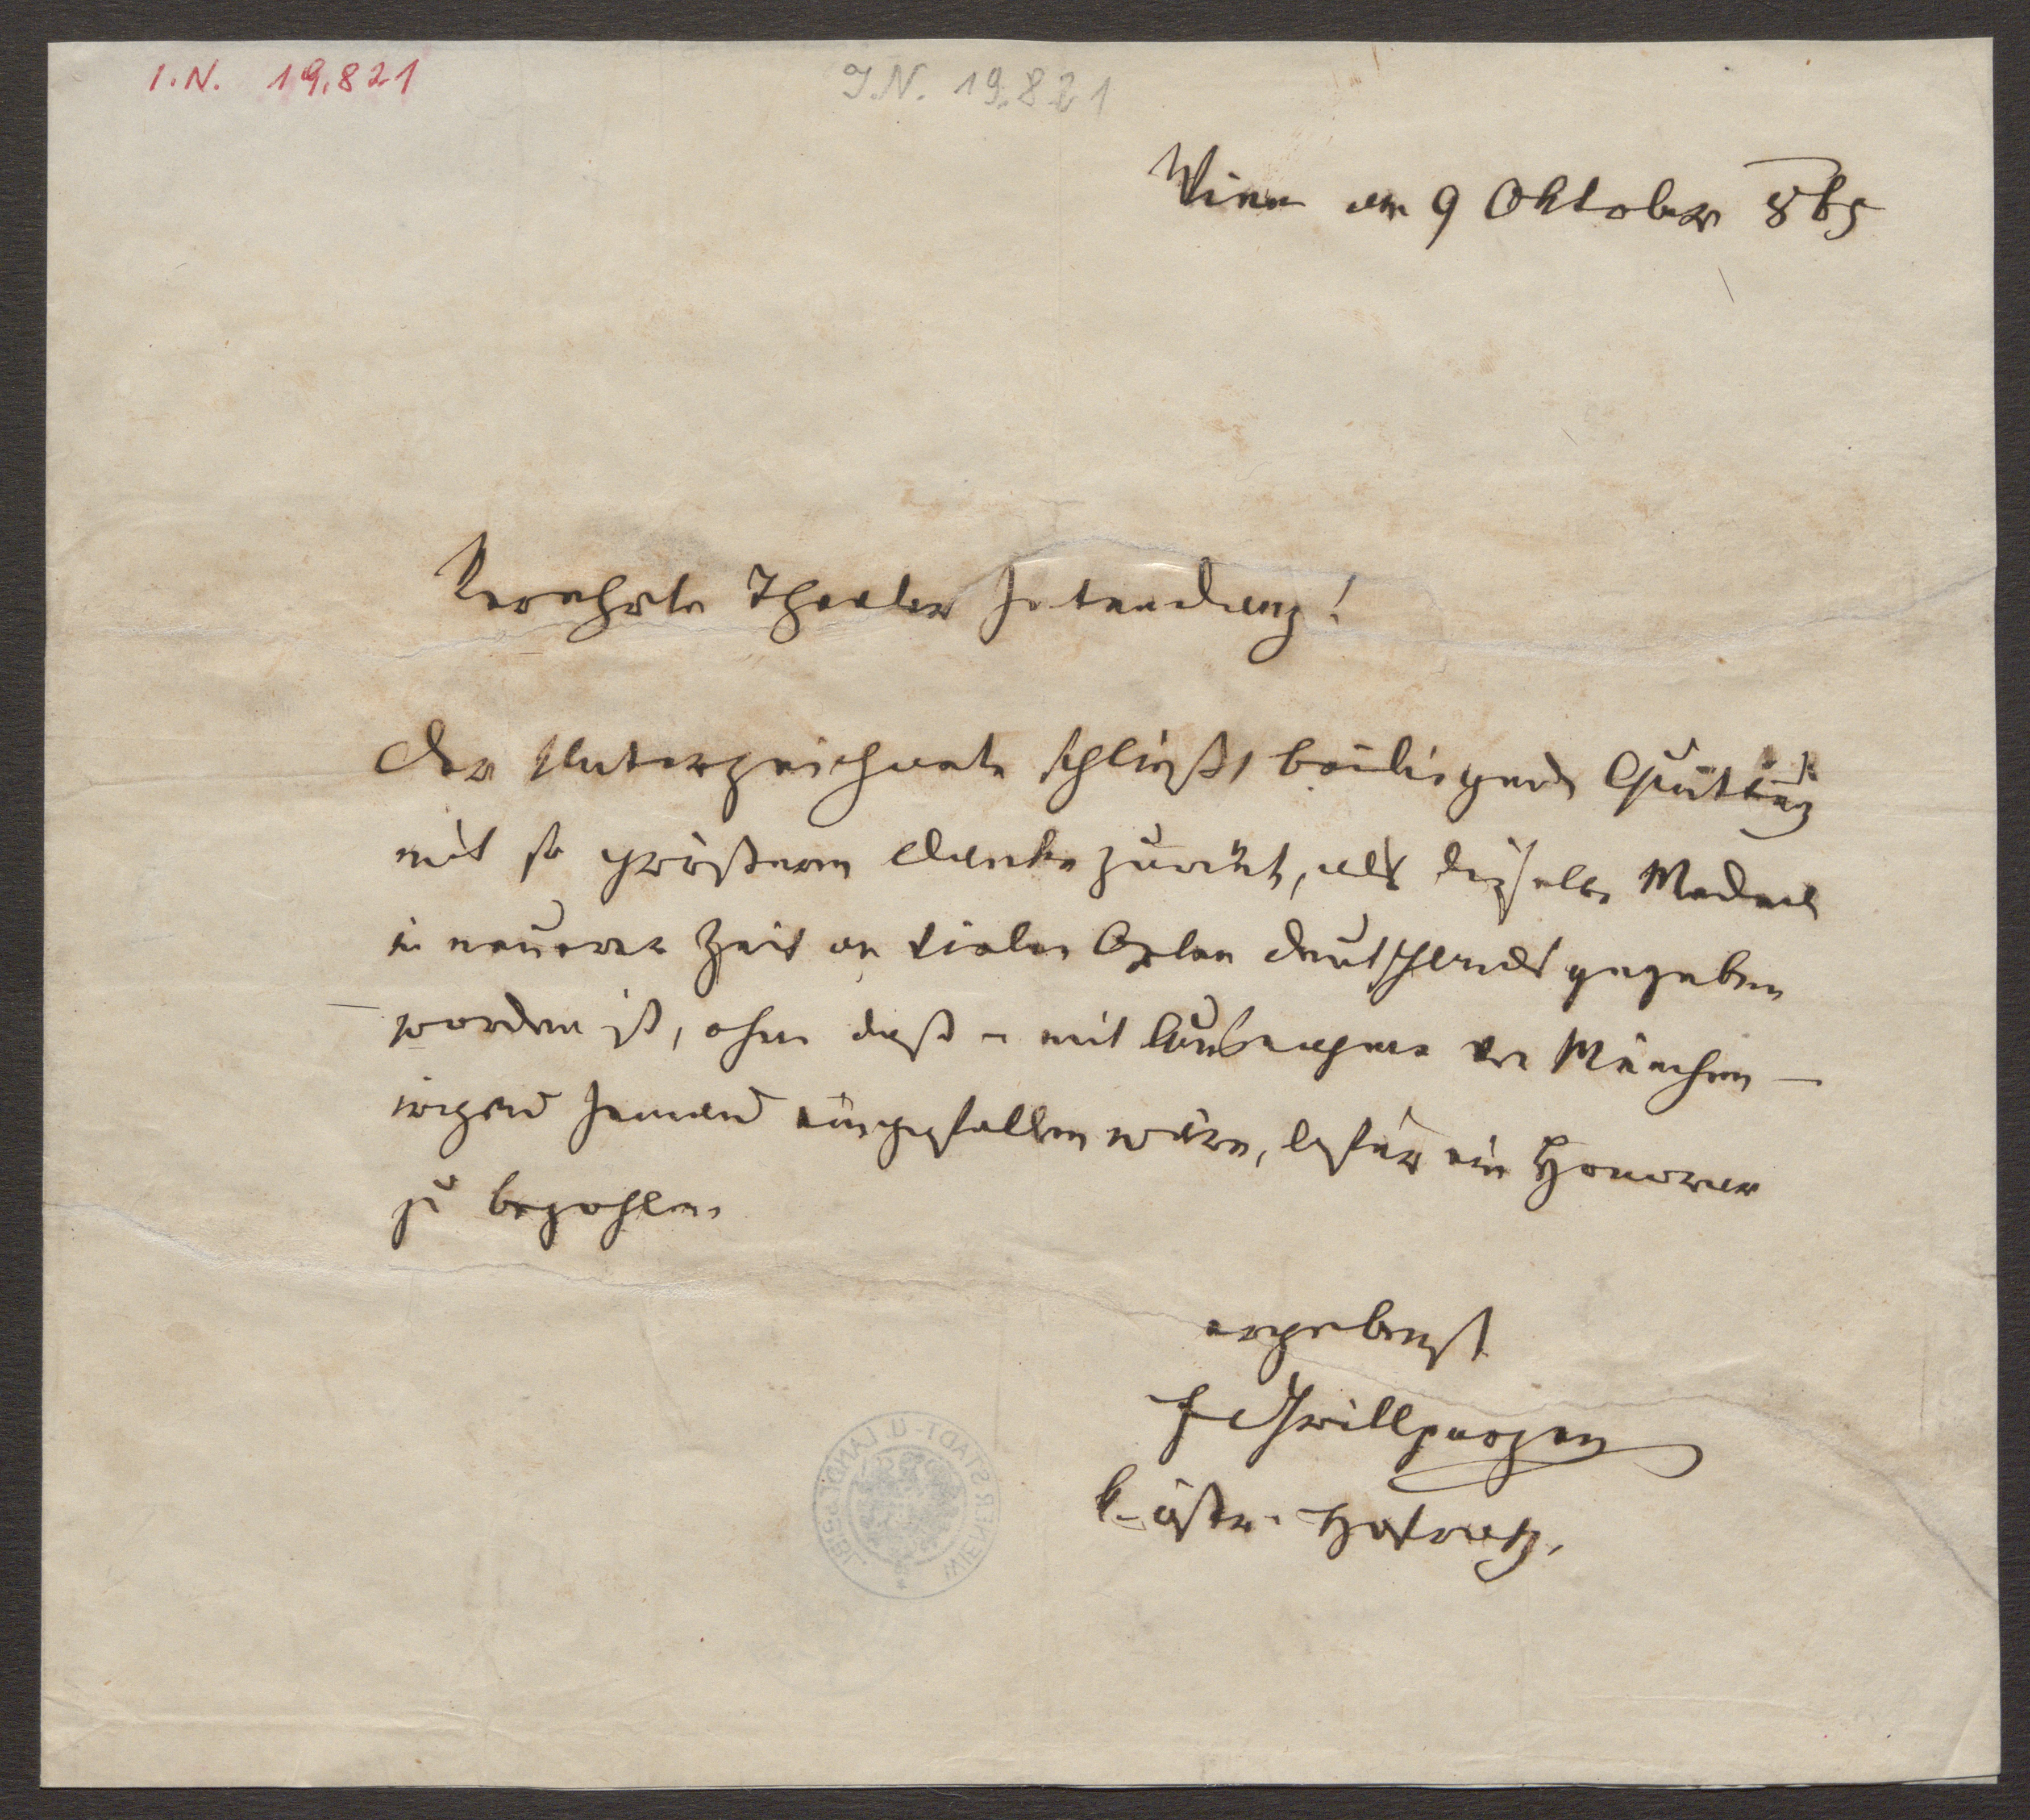 I.N. 19.821
I.N. 19.821
Wien am 9 Oktober 865
Verehrte Theater Intendanz!
Der Unterzeichnete schließt beiliegende Quittung
mit so größerem Danke zurück, als dieselbe Medea
in neuerer Zeit an vielen Orten Deutschlands gegeben
worden ist, ohne daß – mit Ausnahme von München –
irgend Jemand eingefallen wäre, dafür ein Honorar
zu bezahlen
ergebenst
F Grillparzer
k. österr. Hofrath.
WIENER STADT- U. LANDESBIBL.